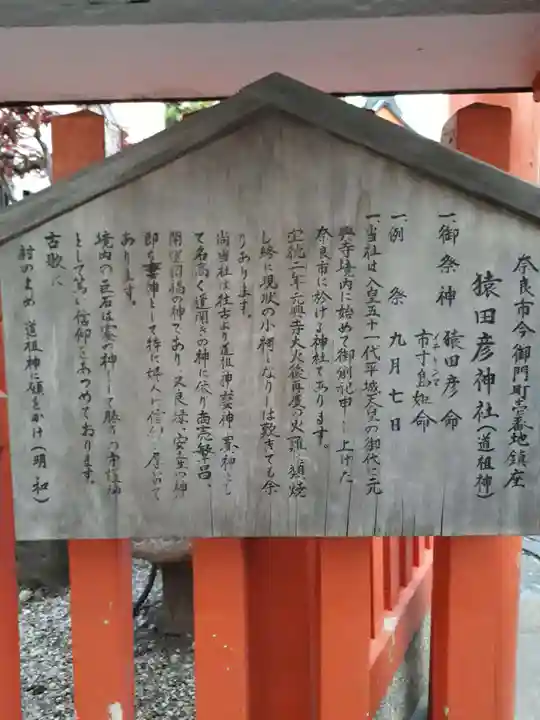 奈良市今御門町壱番地鎮座
猿田彦神社(道祖神)
一、御祭神 猿田彦命
市寸島姫命
一、例 祭 九月七日
一、当社は人皇五十一代平城天皇の御代に元
興寺境内に始めて御創祀申し上げた
奈良市に於ける神社であります。
宝徳二年元興寺大火後再度の火難に類焼
し終に現状の小祠となりしは歎きても余
りあります。
尚当社は往古より道祖神
て名高く道開きの神に依り商売繁昌、
開運招福の神であり、又良縁、安産の神
即ち妻神として特に婦人の信仰の厚いので
あります。
境内の巨石は賽の神
として篤い信仰をあつめております。
古歌に
道祖神に願をかけ(明和)